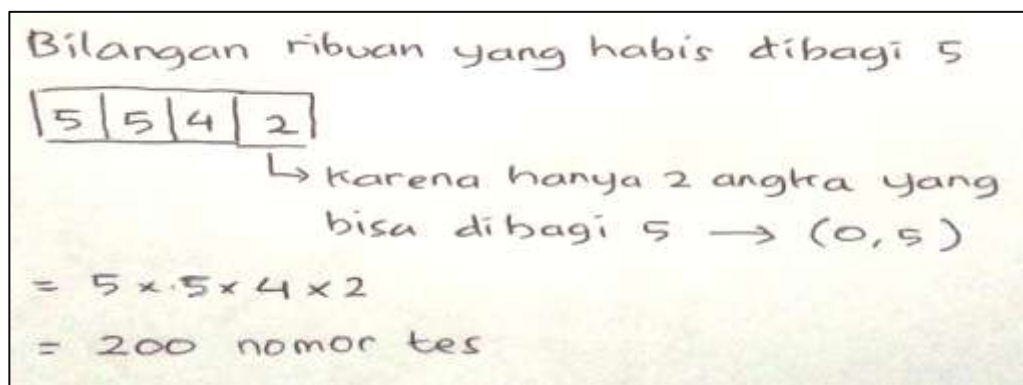 Bilangan ribuan yang habis dibagi 5
5 5 4 2
↳ karena hanya 2 angka yang
bisa dibagi 5 → (0,5)
= 5 x 5 x 4 x 2
= 200 nomor tes